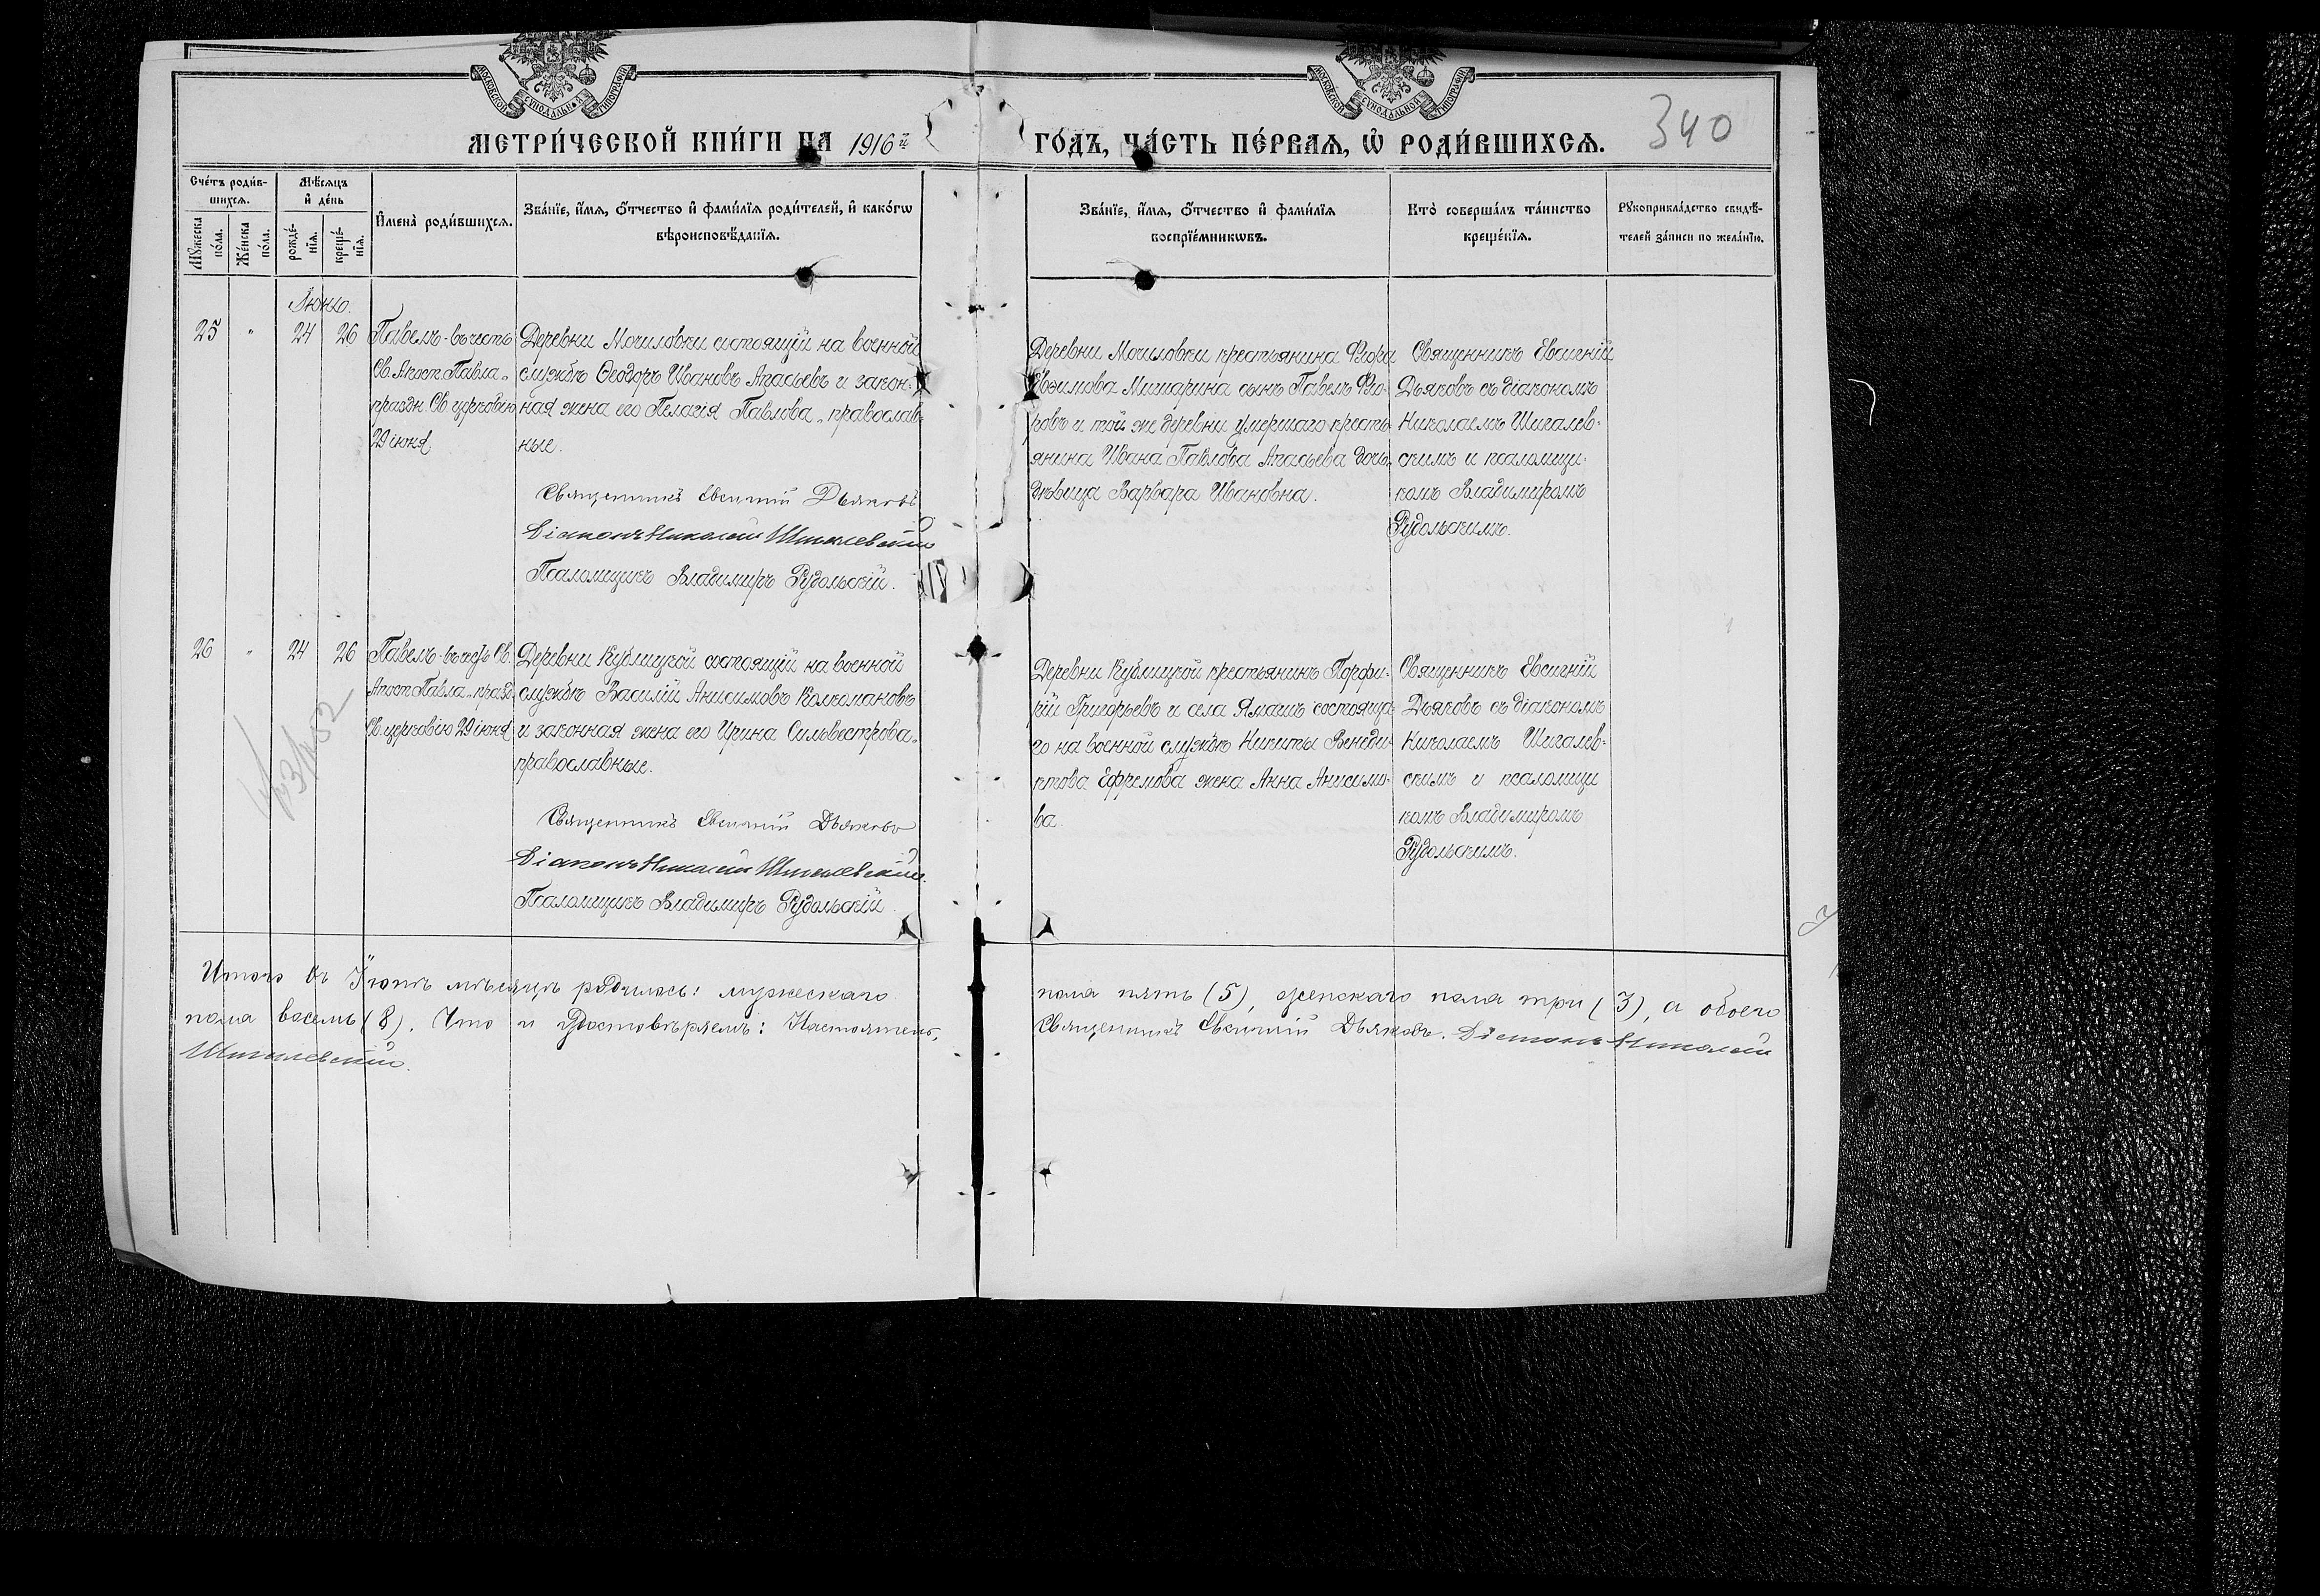 МОСКОВСКОЙ СѴНОДАЛЬНОЙ ТИПОГРАФІИ
МОСКОВСКОЙ СѴНОДАЛЬНОЙ ТИПОГРАФІИ
МЕТРИ́ЧЕСКОЙ КНИ́ГИ НА 1916й ГО́ДЪ, ЧА́СТЬ ПЕ́РВАѦ, Ѡ҆ РОДИ́ВШИХСѦ.
340
Счéтъ роди́в-
шихсѧ.
Мꙋ́жеска по́ла.
Же́нска по́ла.
Мѣ́сѧцъ
и҆ де́нь
рожде́-нїѧ.
креще́-нїѧ.
И҆мена̀ роди́вшихсѧ.
Зва́нїе, и҆́мѧ, ѻ҆́тчество и҆ фами́лїѧ роди́телей, и҆ како́гѡ
вѣроисповѣ́данїѧ.
Зва́нїе, и҆́мѧ, ѻ҆́тчество и҆ фами́лїѧ
воспрїе́мникѡвъ.
Кто̀ соверша́лъ та́инство
креще́нїѧ.
Рꙋкоприкла́дство свидѣ́-
телей за́писи по жела́нїю.
Іюнь.
25 " 24 26
Павелъ-въ честь
Св. Апост. Павла"
праздн. Св. церковію
29 іюня.
Деревни Мочиловки состоящій на военной
службѣ Ѳеодоръ Ивановъ Агасьевъ и закон-
ная жена его Пелагія Павлова, православ-
ные.
Священникъ Евсигній Дьяковъ
Діаконъ Николай Шигалевскій
Псаломщикъ Владиміръ Рудольскій.
Деревни Мочиловки крестьянина Флора
Евѳимова Мишарина сынъ Павелъ Фло-
ровъ и той же деревни умершаго кресть-
янина Ивана Павлова Агасьева дочь,
дѣвица Варвара Ивановна.
Священникъ Евсигній
Дьяковъ съ діакономъ
Николаемъ Шигалев-
скимъ и псаломщи-
комъ Владиміромъ
Рудольскимъ.
26 " 24 26
Павелъ-въ честь Св.
Апост. Павла, празд.
Св. церковію 29 іюня
Деревни состоящій на военной
службѣ Василій Анисимовъ
и законная жена его Ирина Сильвестрова"
православные.
Священникъ Евсигній Дьяковъ
Діаконъ Николай Шигалевскій.
Псаломщикъ Владиміръ Рудольскій.
Деревни крестьянинъ Порфи-
рій Григорьевъ и села Ямашъ состояща-
го на военной службѣ Никиты Венеди-
ктова Ефремова жена Анна Анисимо-
ва.
Священникъ Евсигній
Дьяковъ съ діакономъ
Николаемъ Шигалев-
скимъ и псаломщи
комъ Владиміромъ
Рудольскимъ.
Итого въ Іюнѣ мѣсяцѣ родилось: мужескаго пола пять (5), женскаго пола три (3), а обоего
пола восемь (8). Что и удостовѣряемъ: Настоятель, Священникъ Евсигній Дьяковъ. Діаконъ Николай
Шигалевскій.